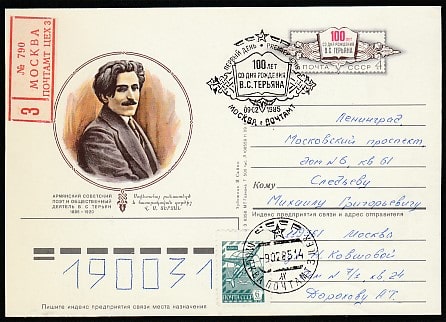 № 790
МОСКВА
ПОЧТАМТ ЦЕХ 3
З
ПЕРВЫЙ ДЕНЬ
100 ЛЕТ
СО ДНЯ РОЖДЕНИЯ
В.С. ТЕРЬЯНА
09.02.1985
МОСКВА ПОЧТАМТ
100 ЛЕТ
СО ДНЯ РОЖДЕНИЯ
В.С. ТЕРЬЯНА
ПОЧТА СССР
АРМЯНСКИЙ СОВЕТСКИЙ
ПОЭТ И ОБЩЕСТВЕННЫЙ
ДЕЯТЕЛЬ В. С. ТЕРЬЯН
1885—1920
Ленинград
Московский проспект
дом № 6, кв 61
Кому Следьеву
Михаилу Григорьевичу
Индекс предприятия связи и адрес отправителя
Москва
дом № кв. 24
190031
Пишите индекс предприятия связи места назначения
ПОЧТАМТ